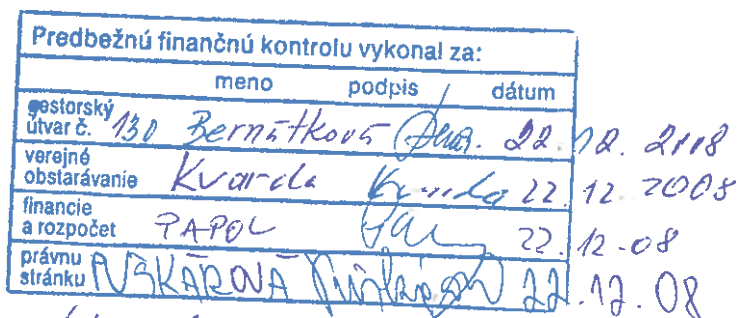 Predbežnú finančnú kontrolu vykonal za:
meno podpis dátum
gestorský
útvar č. 130 Bernátková 22.12.2008
verejné
obstarávanie Kvarda Kvarda 22.12.2008
financie
a rozpočet PAPOL 22.12.08
právnu
stránku 22.12.08